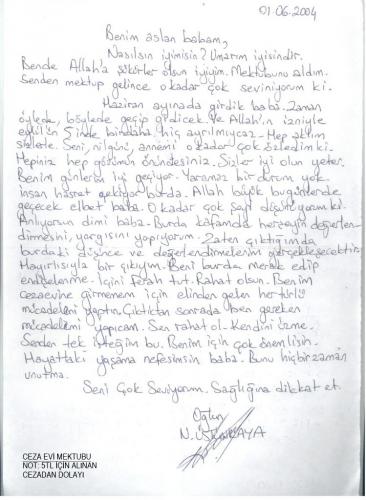 01.06.2004
Benim aslan babam,
Nasılsın iyimisin? Umarım iyisindir.
Bende Allah'a şükürler olsun iyiyim. Mektubunu aldım.
Senden mektup gelince o kadar çok seviniyorum ki.
Haziran ayınada girdik baba. Zaman
öylede, böylede geçip gidicek ve Allah'ın izniyle
eylül'ün inde hiç ayrılmıycaz. Hep aklım
sizlerle. Seni, nilgünü, annemi o kadar çok özledim ki.
Hepiniz hep gözümün önündesiniz. Sizler iyi olun yeter.
Benim günlerim iyi geçiyor. Yaramaz bir durum yok.
insan hasret çekiyor burda. Allah büyük bugünlerde
geçecek elbet baba. O kadar çok şey düşünüyorum ki.
Anlıyorsun dimi baba. Burda kafamda herşeyin değerlen-
dirmesini, yargısını yapıyorum. Zaten çıktığımda
burdaki düşünce ve değerlendirmelerim gerçekleşecektir.
Hayırlısıyla bir çıkıyım. Beni burda merak edip
endişelenme. İçini ferah tut. Rahat olsun. Benim
cezaevine girmemem için elinden gelen her türlü
mücadeleni yaptın. Çıktıktan sonrada ben gereken
mücadelemi yapıcam. Sen rahat ol. Kendini üzme.
Senden tek isteğim bu. Benim için çok önemlisin.
Hayattaki yaşama nefesimsin baba. Bunu hiçbir zaman
unutma.
Seni Çok Seviyorum. Sağlığına dikkat et.
Oğlun
N.
CEZA EVİ MEKTUBU
NOT: 5TL İÇİN ALINAN
CEZADAN DOLAYI